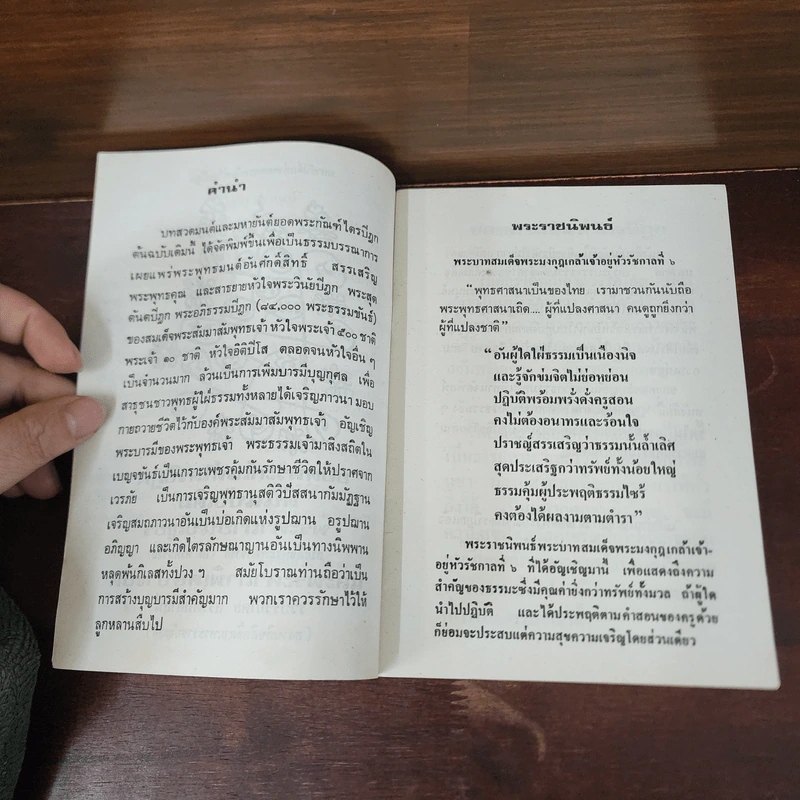 คำนำ
บทสวดมนต์และมหายันต์ยอดพระกัณฑ์ไตรปิฎก
ต้นฉบับเดิมนี้ ได้จัดพิมพ์ขึ้นเพื่อเป็นธรรมบรรณาการ
เผยแพร่พระพุทธมนต์อันศักดิ์สิทธิ์ สรรเสริญ
พระพุทธคุณ และสาธยายหัวใจพระวินัยปิฎก พระสุต
ตันตปิฎก พระอภิธรรมปิฎก (๘๔,๐๐๐ พระธรรมขันธ์)
ของสมเด็จพระสัมมาสัมพุทธเจ้า หัวใจพระเจ้า ๕๐๐ ชาติ
พระเจ้า ๑๐ ชาติ หัวใจอิติปิโส ตลอดจนหัวใจอื่น ๆ
เป็นจำนวนมาก ล้วนเป็นการเพิ่มบารมีบุญกุศล เพื่อ
สาธุชนชาวพุทธผู้ใฝ่ธรรมทั้งหลายได้เจริญภาวนา มอบ
กายถวายชีวิตไว้กับองค์พระสัมมาสัมพุทธเจ้า อัญเชิญ
พระบารมีของพระพุทธเจ้า พระธรรมเจ้ามาสิงสถิตใน
เบญจขันธ์เป็นเกราะเพชรคุ้มกันรักษาชีวิตให้ปราศจาก
เวรภัย เป็นการเจริญพุทธานุสติวิปัสสนากัมมัฏฐาน
เจริญสมถภาวนาอันเป็นบ่อเกิดแห่งรูปฌาน อรูปฌาน
อภิญญา และเกิดไตรลักษณาญานอันเป็นทางนิพพาน
หลุดพ้นกิเลสทั้งปวง ๆ สมัยโบราณท่านถือว่าเป็น
การสร้างบุญบารมีสำคัญมาก พวกเราควรรักษาไว้ให้
ลูกหลานสืบไป
พระราชนิพนธ์
พระบาทสมเด็จพระมงกุฎเกล้าเจ้าอยู่หัวรัชกาลที่ ๖
“ พุทธศาสนาเป็นของไทย เรามาชวนกันนับถือ
พระพุทธศาสนาเถิด... ผู้ที่แปลงศาสนา คนดูถูกยิ่งกว่า
ผู้ที่แปลงชาติ ”
“ อันผู้ใดใฝ่ธรรมเป็นเนืองนิจ
และรู้จักข่มจิตไม่ย่อหย่อน
ปฏิบัติพร้อมพรั่งดั่งครูสอน
คงไม่ต้องอนาทรและร้อนใจ
ปราชญ์สรรเสริญว่าธรรมนั้นล้ำเลิศ
สุดประเสริฐกว่าทรัพย์ทั้งน้อยใหญ่
ธรรมคุ้มผู้ประพฤติธรรมไซร้
คงต้องได้ผลงามตามตำรา ”
พระราชนิพนธ์พระบาทสมเด็จพระมงกุฎเกล้าเจ้า-
อยู่หัวรัชกาลที่ ๖ ที่ได้อัญเชิญมานี้ เพื่อแสดงถึงความ
สำคัญของธรรมะซึ่งมีคุณค่ายิ่งกว่าทรัพย์ทั้งมวล ถ้าผู้ใด
นำไปปฏิบัติ และได้ประพฤติตามคำสอนของครูด้วย
ก็ย่อมจะประสบแต่ความสุขความเจริญโดยส่วนเดียว